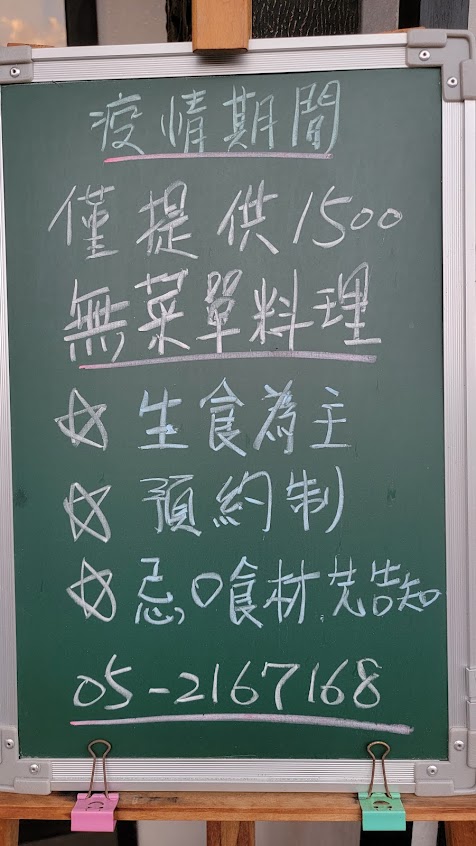 疫情期間
僅提供1500
無菜單料理
☆ 生食為主
☆ 預約制
☆ 忌口食材先告知
05-2167168